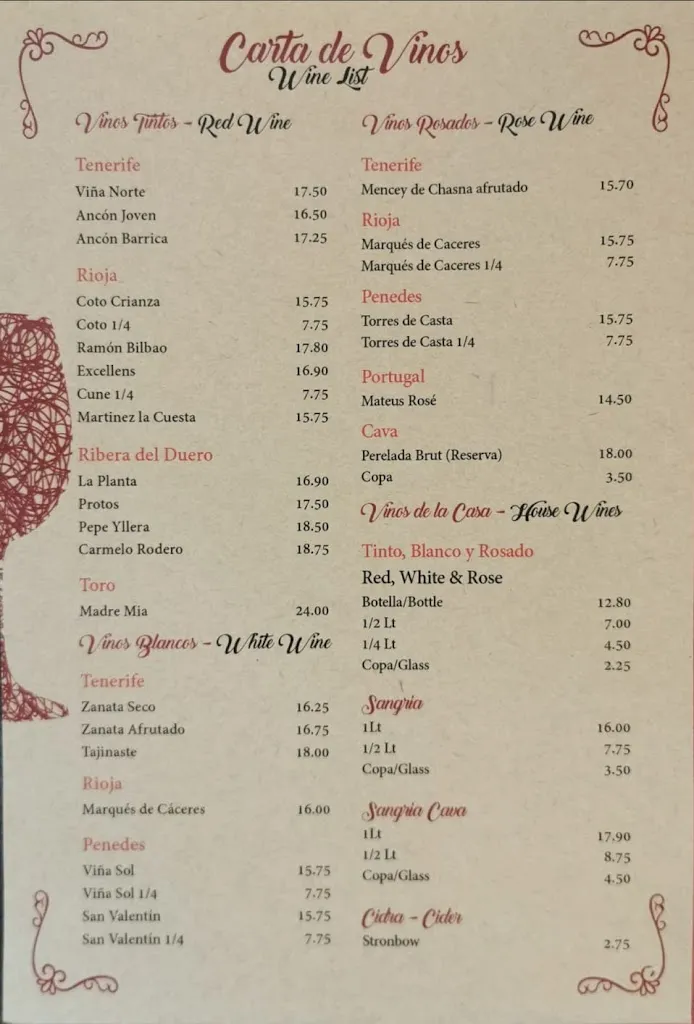 Carta de Vinos
Wine List
Vinos Tintos - Red Wine
Tenerife
Viña Norte 17.50
Ancón Joven 16.50
Ancón Barrica 17.25
Rioja
Coto Crianza 15.75
Coto 1/4 7.75
Ramón Bilbao 17.80
Excellens 16.90
Cune 1/4 7.75
Martinez la Cuesta 15.75
Ribera del Duero
La Planta 16.90
Protos 17.50
Pepe Yllera 18.50
Carmelo Rodero 18.75
Toro
Madre Mia 24.00
Vinos Blancos - White Wine
Tenerife
Zanata Seco 16.25
Zanata Afrutado 16.75
Tajinaste 18.00
Rioja
Marqués de Cáceres 16.00
Penedes
Viña Sol 15.75
Viña Sol 1/4 7.75
San Valentín 15.75
San Valentín 1/4 7.75
Vinos Rosados - Rose Wine
Tenerife
Mencey de Chasna afrutado 15.70
Rioja
Marqués de Caceres 15.75
Marqués de Caceres 1/4 7.75
Penedes
Torres de Casta 15.75
Torres de Casta 1/4 7.75
Portugal
Mateus Rosé 14.50
Cava
Perelada Brut (Reserva) 18.00
Copa 3.50
Vinos de la Casa - House Wines
Tinto, Blanco y Rosado
Red, White & Rose
Botella/Bottle 12.80
1/2 Lt 7.00
1/4 Lt 4.50
Copa/Glass 2.25
Sangría
1Lt 16.00
1/2 Lt 7.75
Copa/Glass 3.50
Sangria Cava
1Lt 17.90
1/2 Lt 8.75
Copa/Glass 4.50
Cidra - Cider
Stronbow 2.75